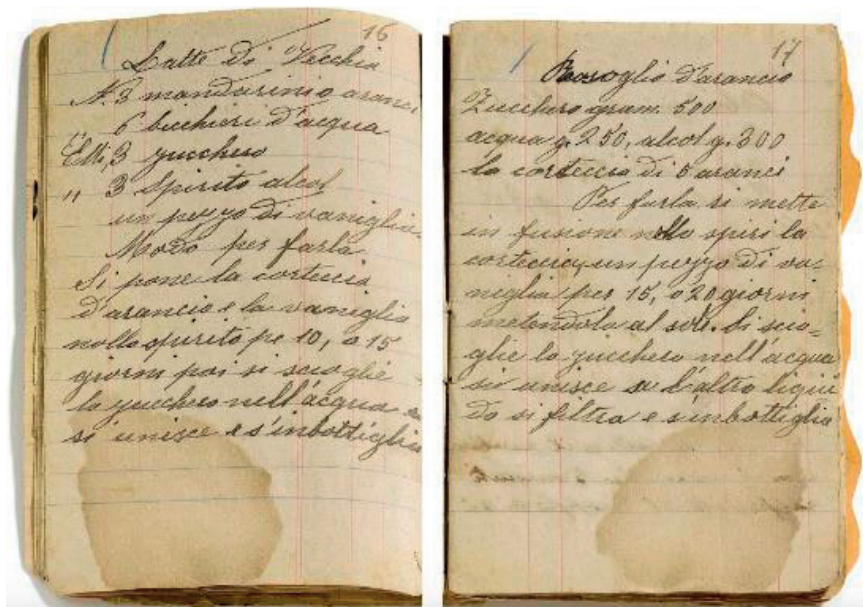 16
Latte Di Vecchia
N. 3 mandarini o aranci
6 bicchieri d'acqua
Etti, 3 zucchero
" 3 Spirito alcol
un pezzo di vaniglia
Modo per farla
Si pone la corteccia
d'arancia e la vaniglia
nello spirito pe 10, o 15
giorni poi si scioglie
lo zucchero nell'acqua
si unisce e s'imbottiglia
17
Rosoglio d'arancio
Zucchero gram. 500
acqua g. 250, alcol g. 300
la corteccia di 5 aranci
Per farla si mette
in fusione nello spiri la
corteccia, un pezzo di va=
niglia per 15, o 20 giorni
metendola al sole. Si scio=
glie lo zucchero nell'acqua
si unisce all'altro liqui
do si filtra e s'imbottiglia